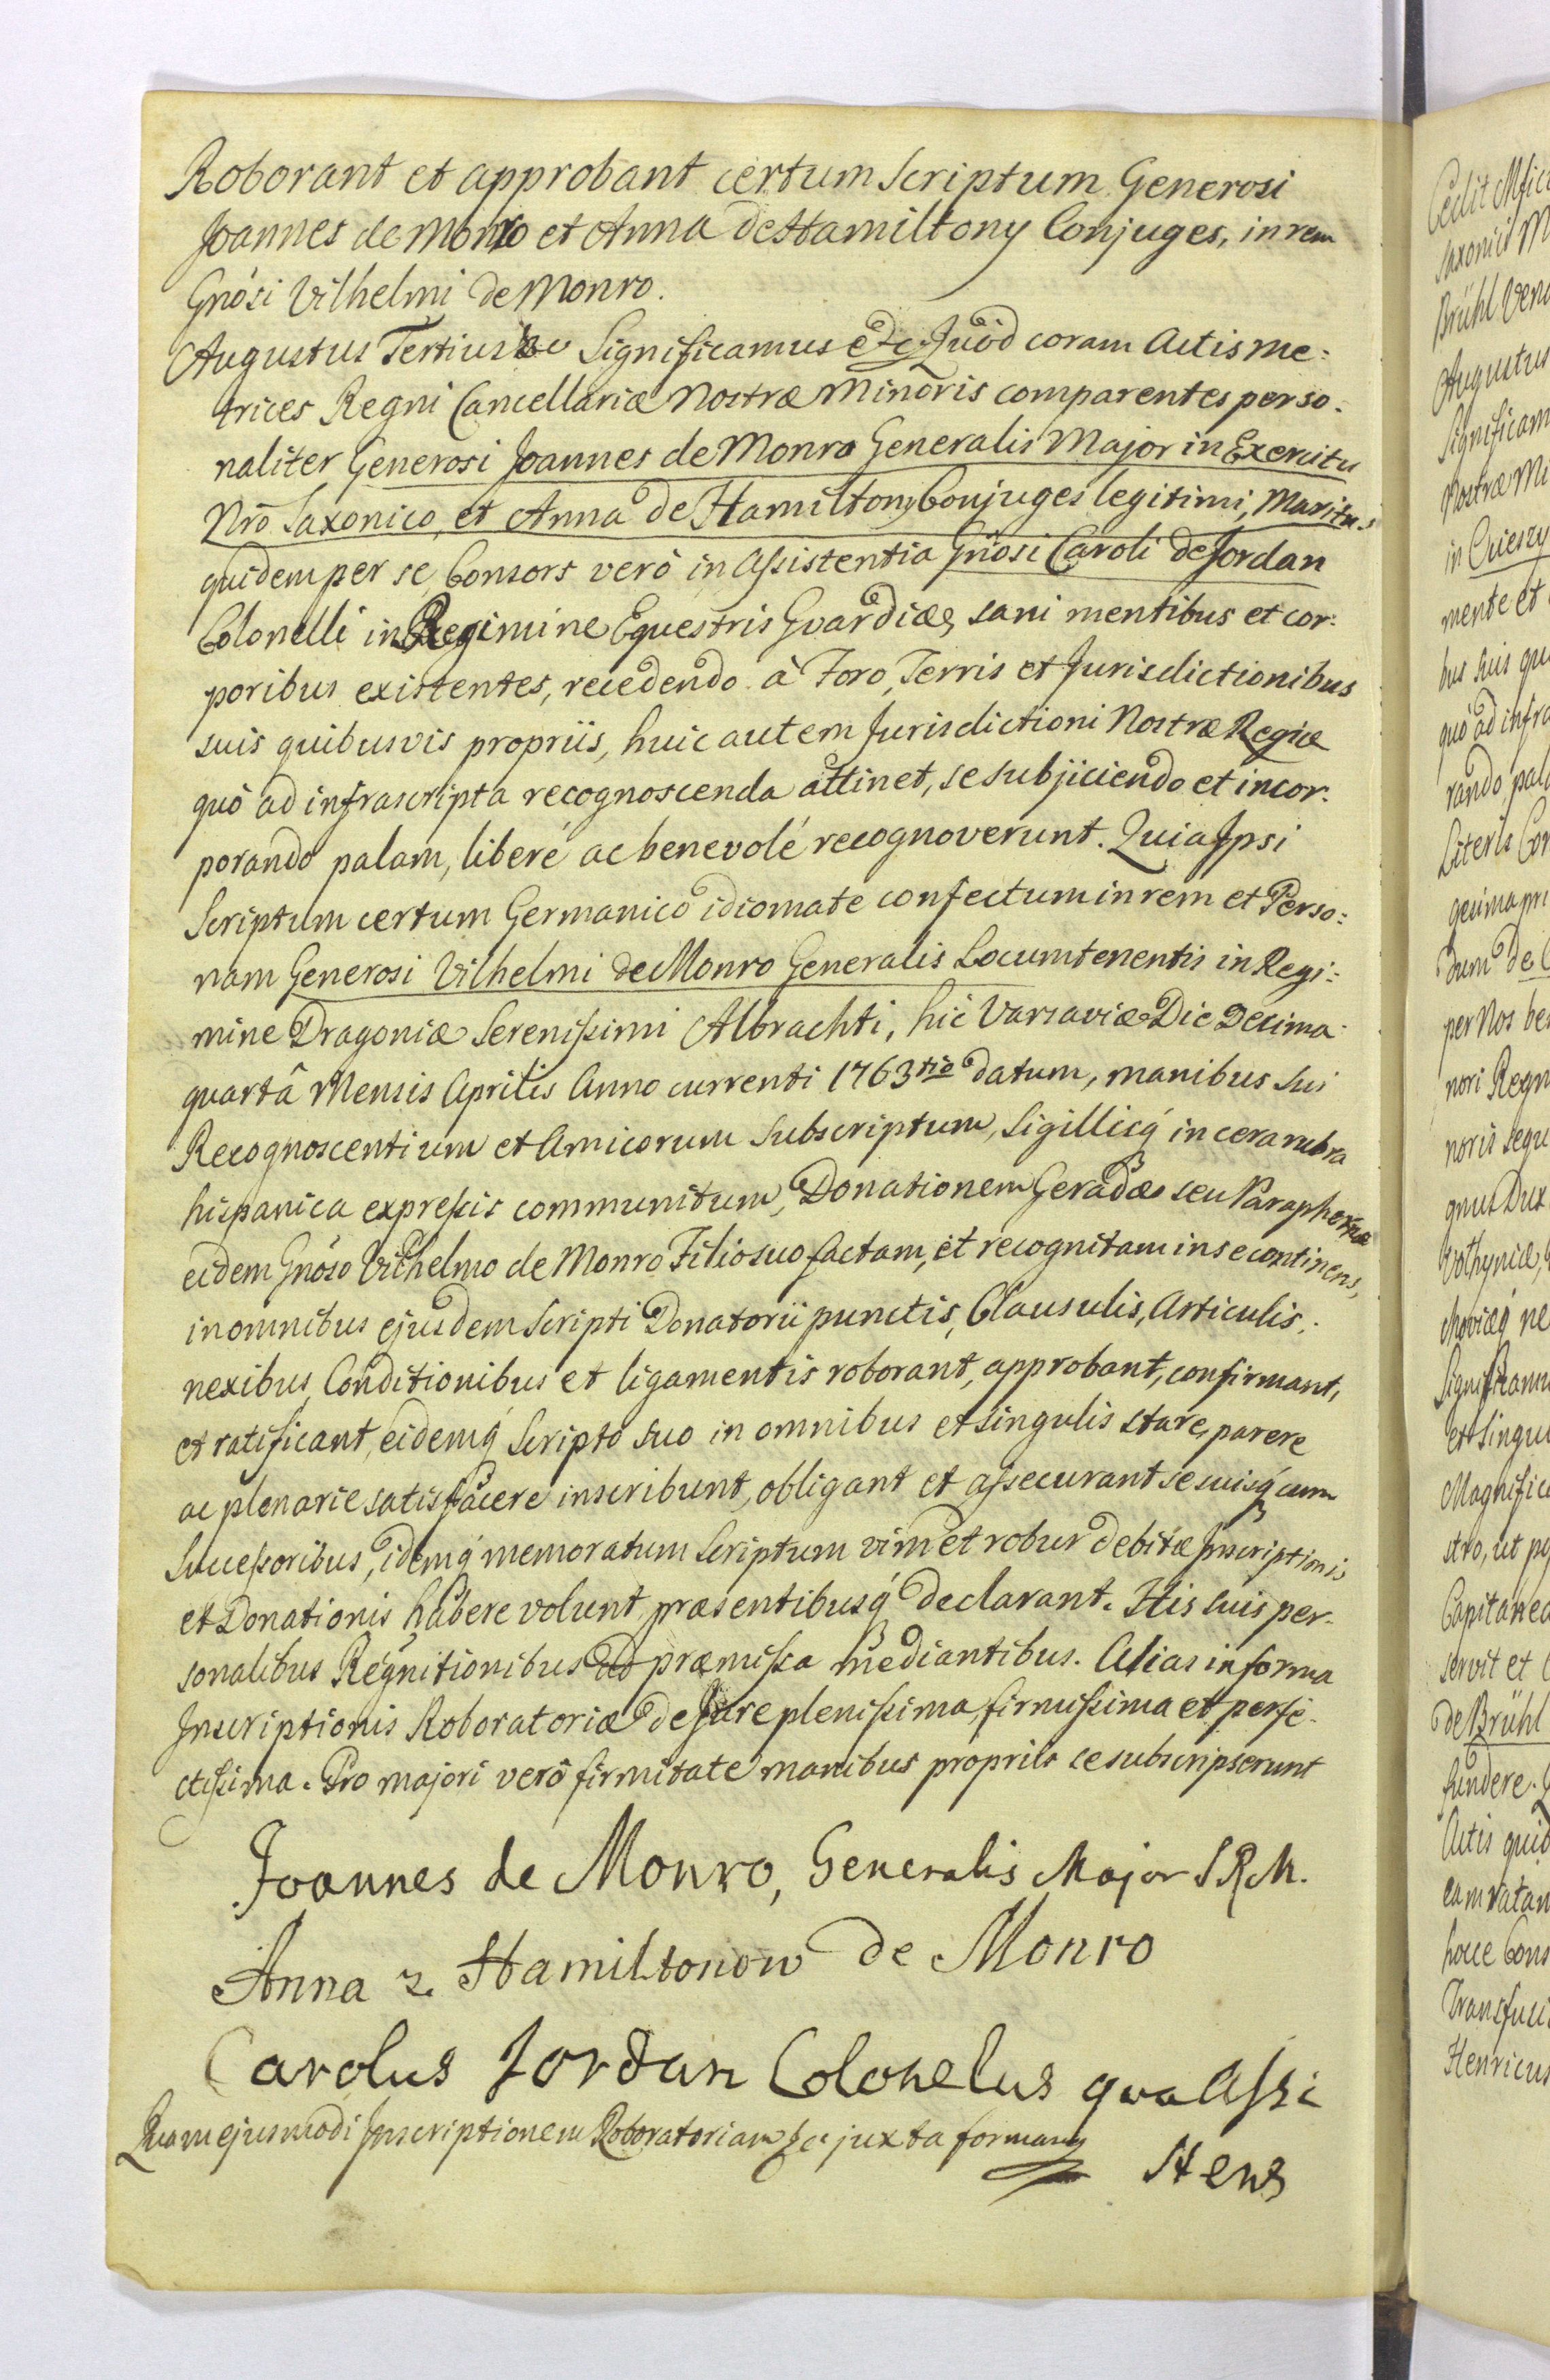 Roborant et approbant certum Scriptum Generosi
Joannes de Monro et Anna de Hamiltony Conjuges, in rem
Gnosi Vilhelmi de Monro.
Augustus Tertius &c Significamus &c Quod coram Actis me=
trices Regni Cancellariæ Nostræ Minoris comparentes perso=
naliter Generosi Joannes de Monro Generalis Major in Exercitu
Nrō Saxonico, et Anna de Hamiltony Conjuges legitimi, Maritus
quidem per se, Consors verò in Assistentia Gnosi Caroli de Jordan
Colonelli in Regimine Equestris Gvardiæ, sani mentibus et cor=
poribus existentes, recedendo à Foro, Terris et Jurisdictionibus
suis quibusvis propriis, huic autem Jurisdictioni Nostræ Regiæ
quò ad infrascripta recognoscenda attinet, se subjiciendo et incor=
porando palam, liberé ac benevolé recognoverunt. Quia Ipsi
Scriptum certum Germanico idiomate confectum in rem et Perso=
nam Generosi Vilhelmi de Monro Generalis Locumtenentis in Regi=
mine Dragoniæ Serenissimi Albrachti, hic Varsaviæ Die Decima
quartâ Mensis Aprilis Anno currenti 1763tio datum, manibus Sui
Recognoscentium et Amicorum Subscriptum, Sigillisq́ in cera rubra
hispanica expressis communitum, Donationem Geradæ seu Paraphernæ
eidem Gnóso Vilhelmo de Monro Filio suo factam, et recognitam in se continens,
in omnibus ejusdem Scripti Donatorii punctis, Clausulis, Articulis,
nexibus, Conditionibus et ligamentis roborant, approbant, confirmant,
et ratificant, eidemq́ Scripto suo in omnibus et singulis stare, parere
ac plenarie satisfacere inscribunt, obligant et assecurant se suisq́ cum
Successoribus, idemq́ memoratum Scriptum vim et robur debitæ Inscriptionis
et Donationis habere volunt, præsentibusq́ declarant. His suis per=
sonalibus Rēgnitionibus ad præmissa mediantibus. Alias in forma
Inscriptionis Roboratoriæ de Jure plenissima, firmissima et perfe=
ctissima. Pro majori verò firmitate manibus propriis se subscripserunt
Joannes de Monro, Generalis Major S R M.
Anna z Hamiltonow de Monro
Carolus Jordan Colonelus qva Assi
Quam ejusmodi Inscriptionem Roboratoriam &c juxta formam
stens